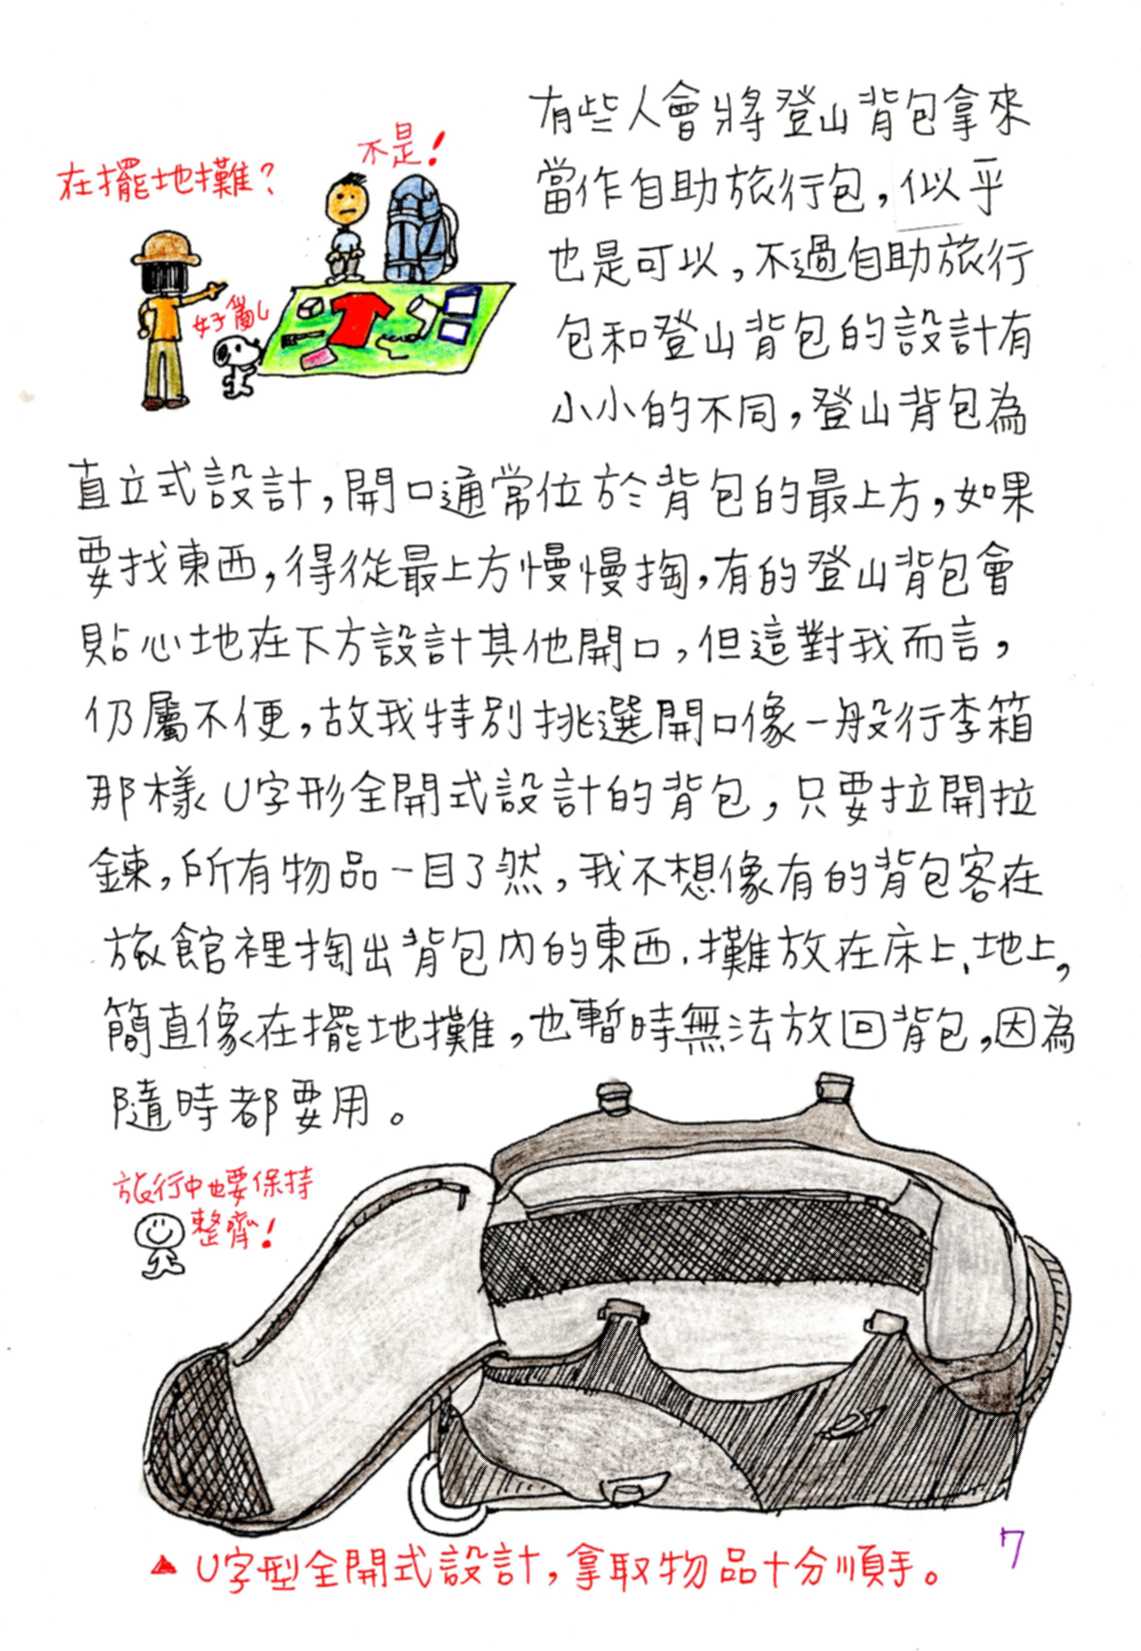 在擺地攤？
不是！
好亂
有些人會將登山背包拿來
當作自助旅行包，似乎
也是可以，不過自助旅行
包和登山背包的設計有
小小的不同，登山背包為
直立式設計，開口通常位於背包的最上方，如果
要找東西，得從最上方慢慢掏，有的登山背包會
貼心地在下方設計其他開口，但這對我而言，
仍屬不便，故我特別挑選開口像一般行李箱
那樣U字形全開式設計的背包，只要拉開拉
鍊，所有物品一目了然，我不想像有的背包客在
旅館裡掏出背包內的東西，攤放在床上、地上，
簡直像在擺地攤，也暫時無法放回背包，因為
隨時都要用。
旅行中也要保持
整齊！
▲U字型全開式設計，拿取物品十分順手。
7